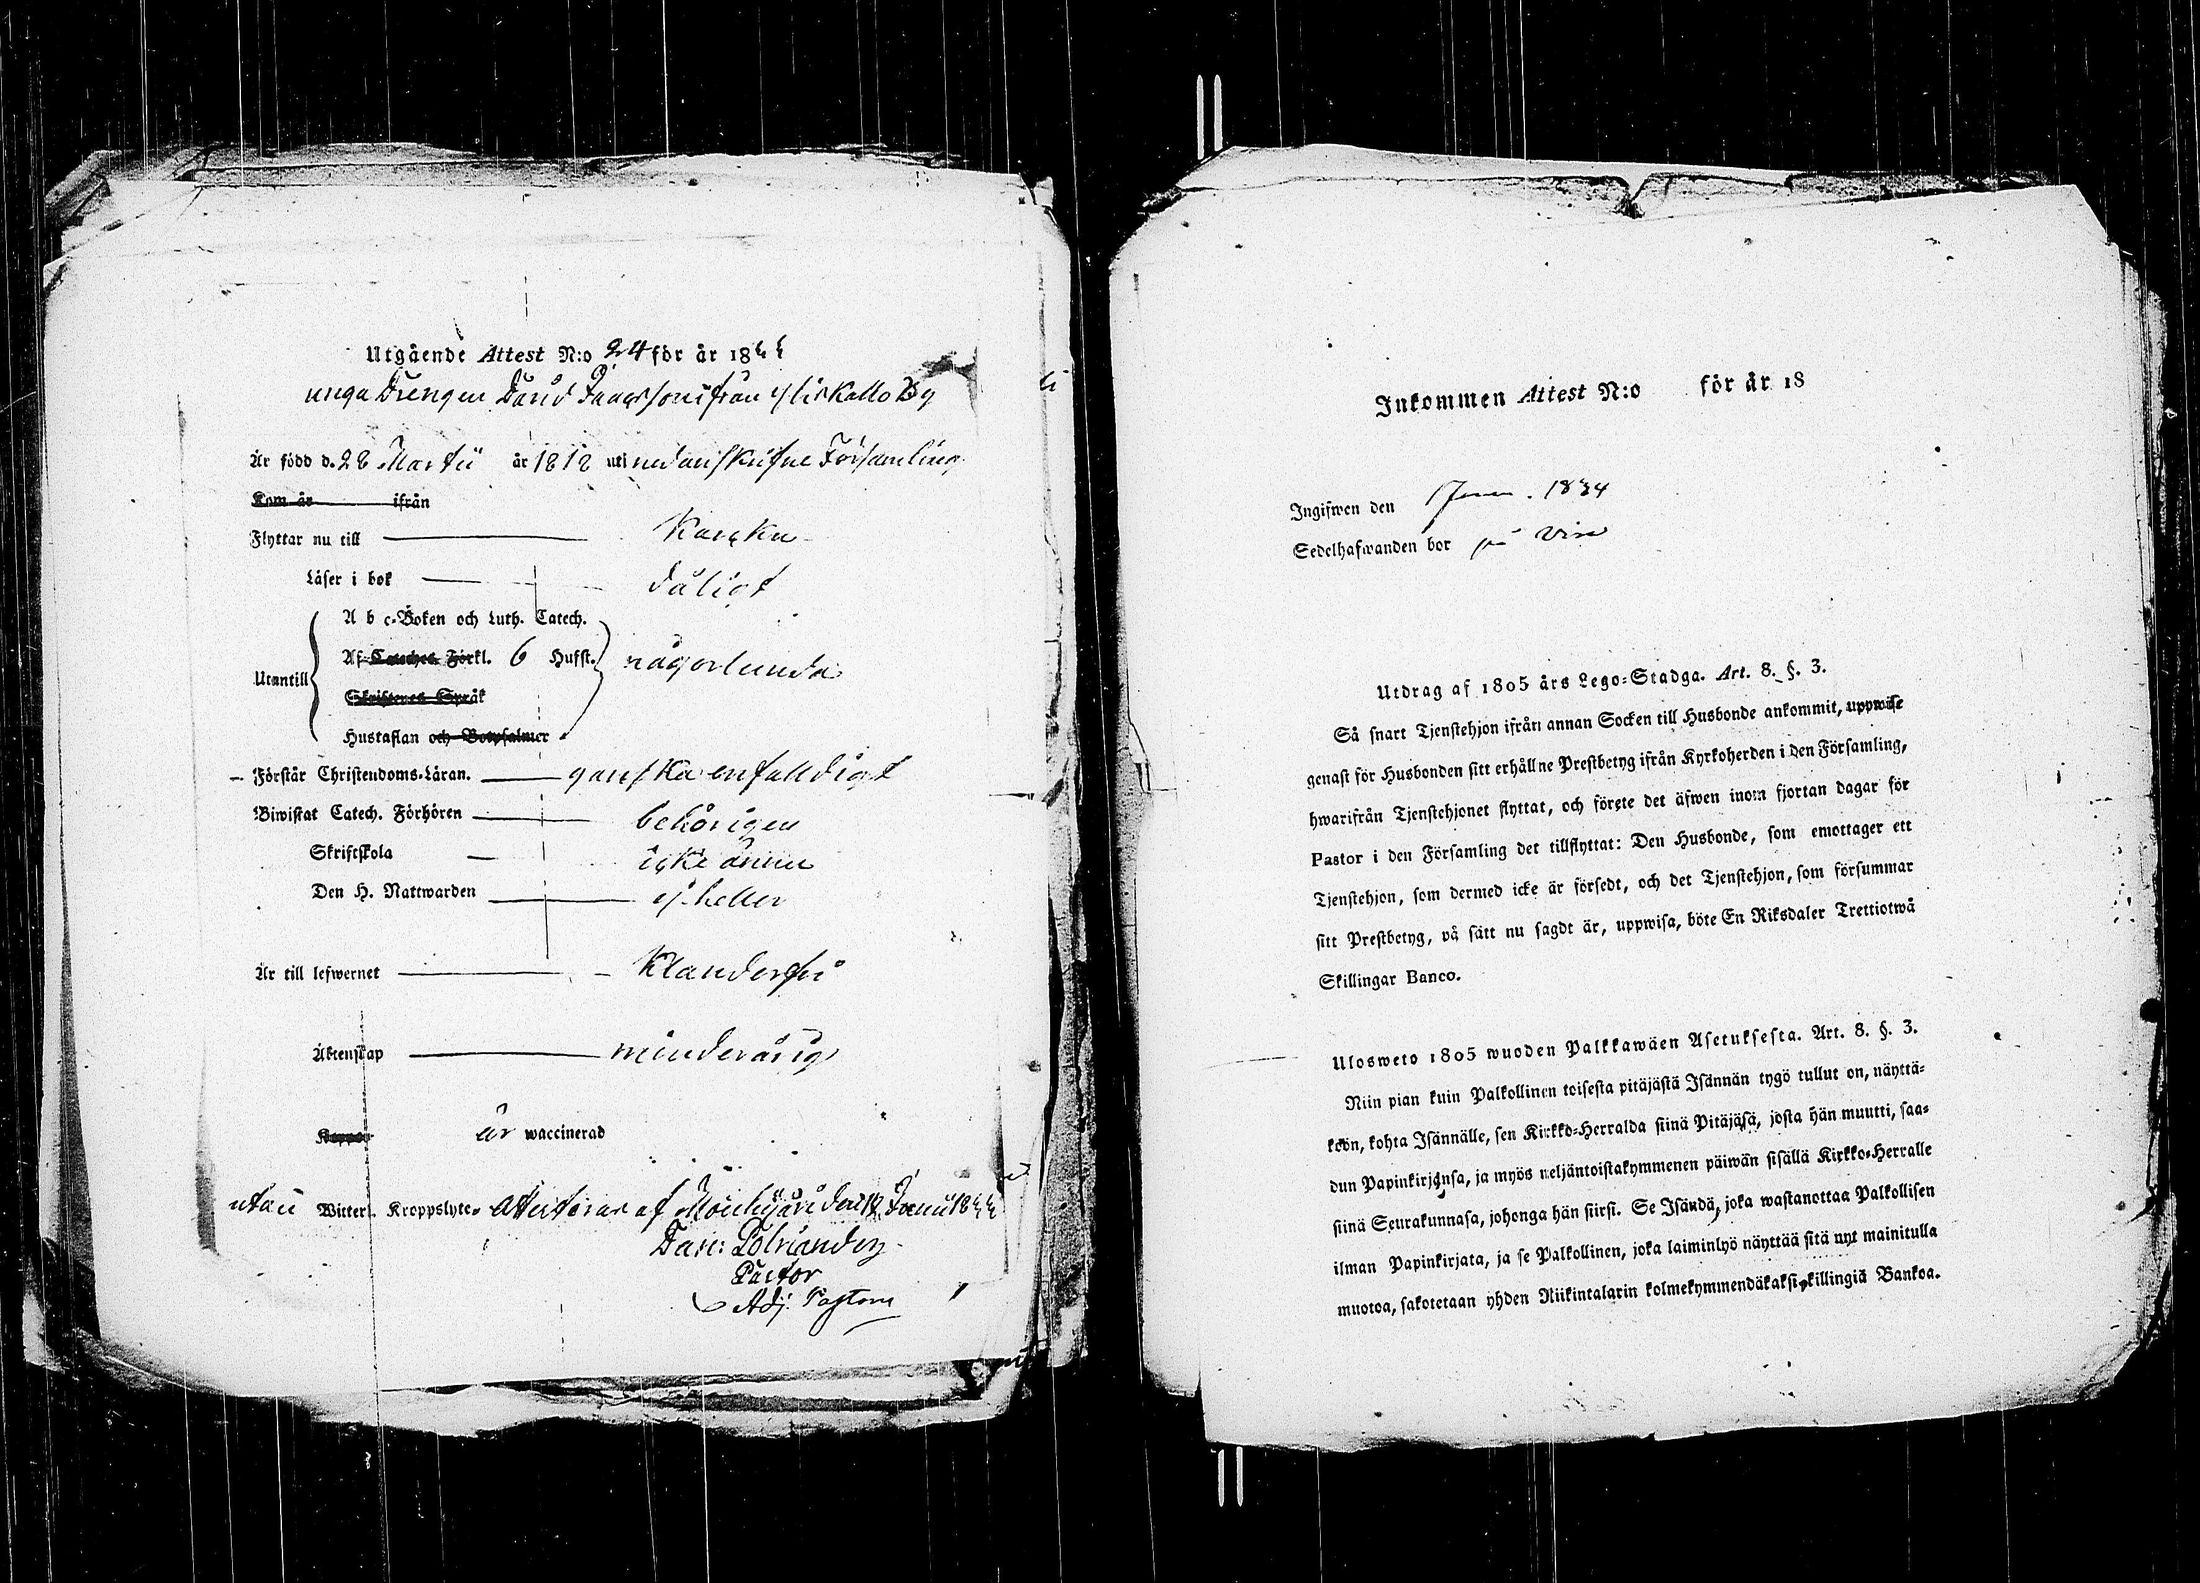 Utgående Attest N:o 24 för år 18
unga Drengen David ifrån By
Är född d. 28 Martii år 1818 uti nedanskrifne Församling
Kom år ifrån
Flyttar nu till Karkku
Läser i bok dåligt
A b c-Boken och Luth. Catech.
Af Cateches. Förkl. 6 Hufst. någorlunda
Utantill
Skriftenes Språk
Hustaflan och Botpsalmer
Förstår Christendoms-Läran. ganska enfalldigt
Biwistat Catech. Förhören behörigen
Skriftskola icke ännu
Den H. Nattwarden ej heller
Är till lefwernet Klanderfri
Äktenskap minderårig
är waccinerad
utan Witterl. Kroppslyte. Attesteras af Mouhijärvi den
Pastor
Adj. Pastoris
Inkommen Attest N:o för år 18
Ingifwen den 1834
Sedelhafwanden bor på
Utdrag af 1805 års Lego-Stadga. Art. 8. §. 3.
Så snart Tjenstehjon ifrån annan Socken till Husbonde ankommit, uppwise
genast för Husbonden sitt erhållne Prestbetyg ifrån Kyrkoherden i den Församling,
hwarifrån Tjenstehjonet flyttat, och förete det äfwen inom fjortan dagar för
Pastor i den Församling det tillflyttat: Den Husbonde, som emottager ett
Tjenstehjon, som dermed icke är försedt, och det Tjenstehjon, som försummar
sitt Prestbetyg, på sätt nu sagdt är, uppwisa, böte En Riksdaler Trettiotwå
Skillingar Banco.
Ulosweto 1805 wuoden Palkkawäen Asetuksesta. Art. 8. §. 3.
Niin pian kuin Palkollinen toisesta pitäjästä Isännän tygö tullut on, näyttä-
köön, kohta Isännälle, sen Kirkko-Herralda siinä Pitäjäsä, josta hän muutti, saa-
dun Papinkirjansa, ja myös neljäntoistakymmenen päiwän sisällä Kirkko-Herralle
siinä Seurakunnasa, johonga hän siirsi. Se Isändä, joka wastanottaa Palkollisen
ilman Papinkirjata, ja se Palkollinen, joka laiminlyö näyttää sitä nyt mainitulla
muotoa, sakotetaan yhden Riikintalarin kolmekymmendäkaksi skillingiä Bankoa.